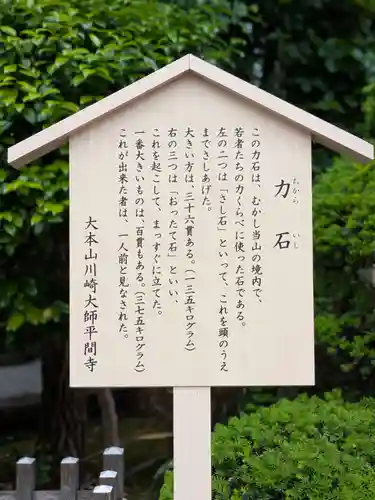 力石
ちから いし
この力石は、むかし当山の境内で、
若者たちの力くらべに使った石である。
左の二つは「さし石」といって、これを頭のうえ
までさしあげた。
大きい方は、三十六貫ある。（一三五キログラム）
右の三つは「おったて石」といい、
これを起こして、まっすぐに立てた。
一番大きいものは、百貫もある。（三七五キログラム）
これが出来た者は、一人前と見なされた。
大本山川崎大師平間寺